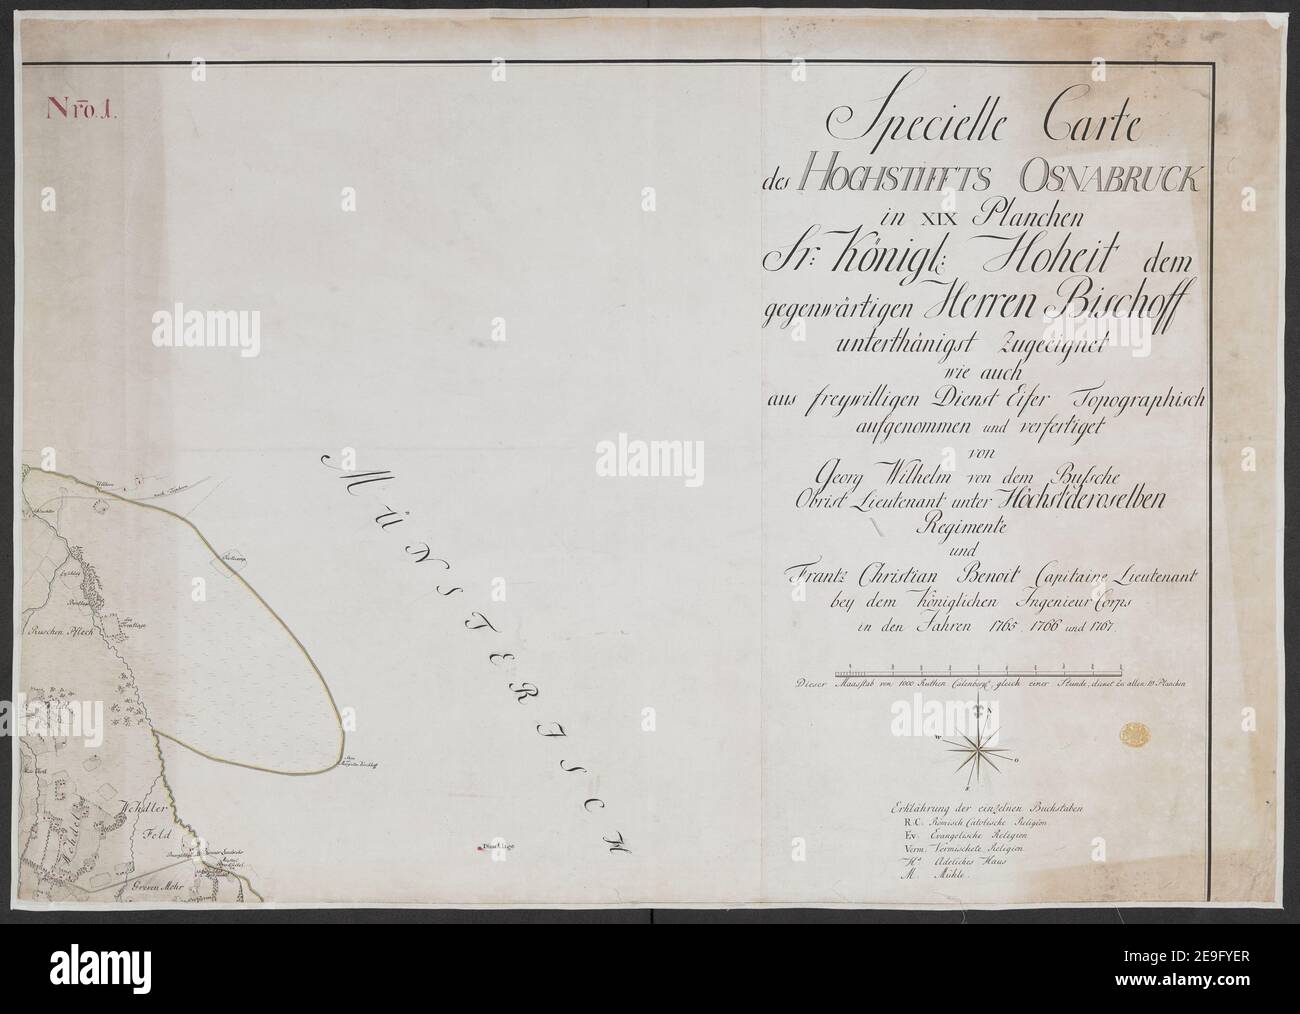 Nro. 1.
Specielle Carte
des HOCHSTIFFTS OSNABRUCK
in XIX Planchen
Sr: Königl: Hoheit dem
gegenwärtigen Herren Bischoff
unterthänigst Zugeeignet
wie auch
aus freywilligen Dienst Eifer Topographisch
aufgenommen und verfertiget
von
Georg Wilhelm von dem Bussche
Obrist Lieutenant unter Höchstderoselben
Regimente
und
Frantz Christian Benoit Capitaine Lieutenant
bey dem Königlichen Ingenieur Corps
in den Jahren 1765. 1766 und 1767.
Dieser Maasstab von 1000 Ruthen Calenberg: gleich einer Stunde, dienet zu allen 19 Planchen
W
O
Erklährung der einzelnen Buchstaben
R.C. Römisch Catolische Religion
Ev. Evangelische Religion
Verm. Vermischete Religion
Hs Adeliches Haus
M. Mühle.
MÜNSTERISCH
Ruschen Flech
Wehdel
Wehdler
Feld
Greven Mohr
Dincklage
alamy
Image ID: 2E9FYER
www.alamy.com